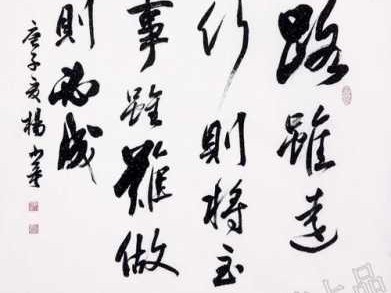 路雖遠
行則將至
事雖難做
則必成
庚子夏楊